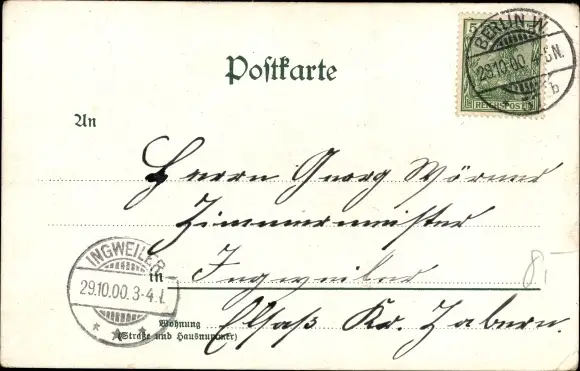 5
BERLIN W.
28.10.00. 4-5N.
b
REICHSPOST
Postkarte
An
Herrn Georg Wörner
Zimmermeister
INGWEILER
29.10.00. 3-4.
in Ingweiler
8,-
Elsaß Kr. Zabern.
Wohnung
(Straße und Hausnummer)